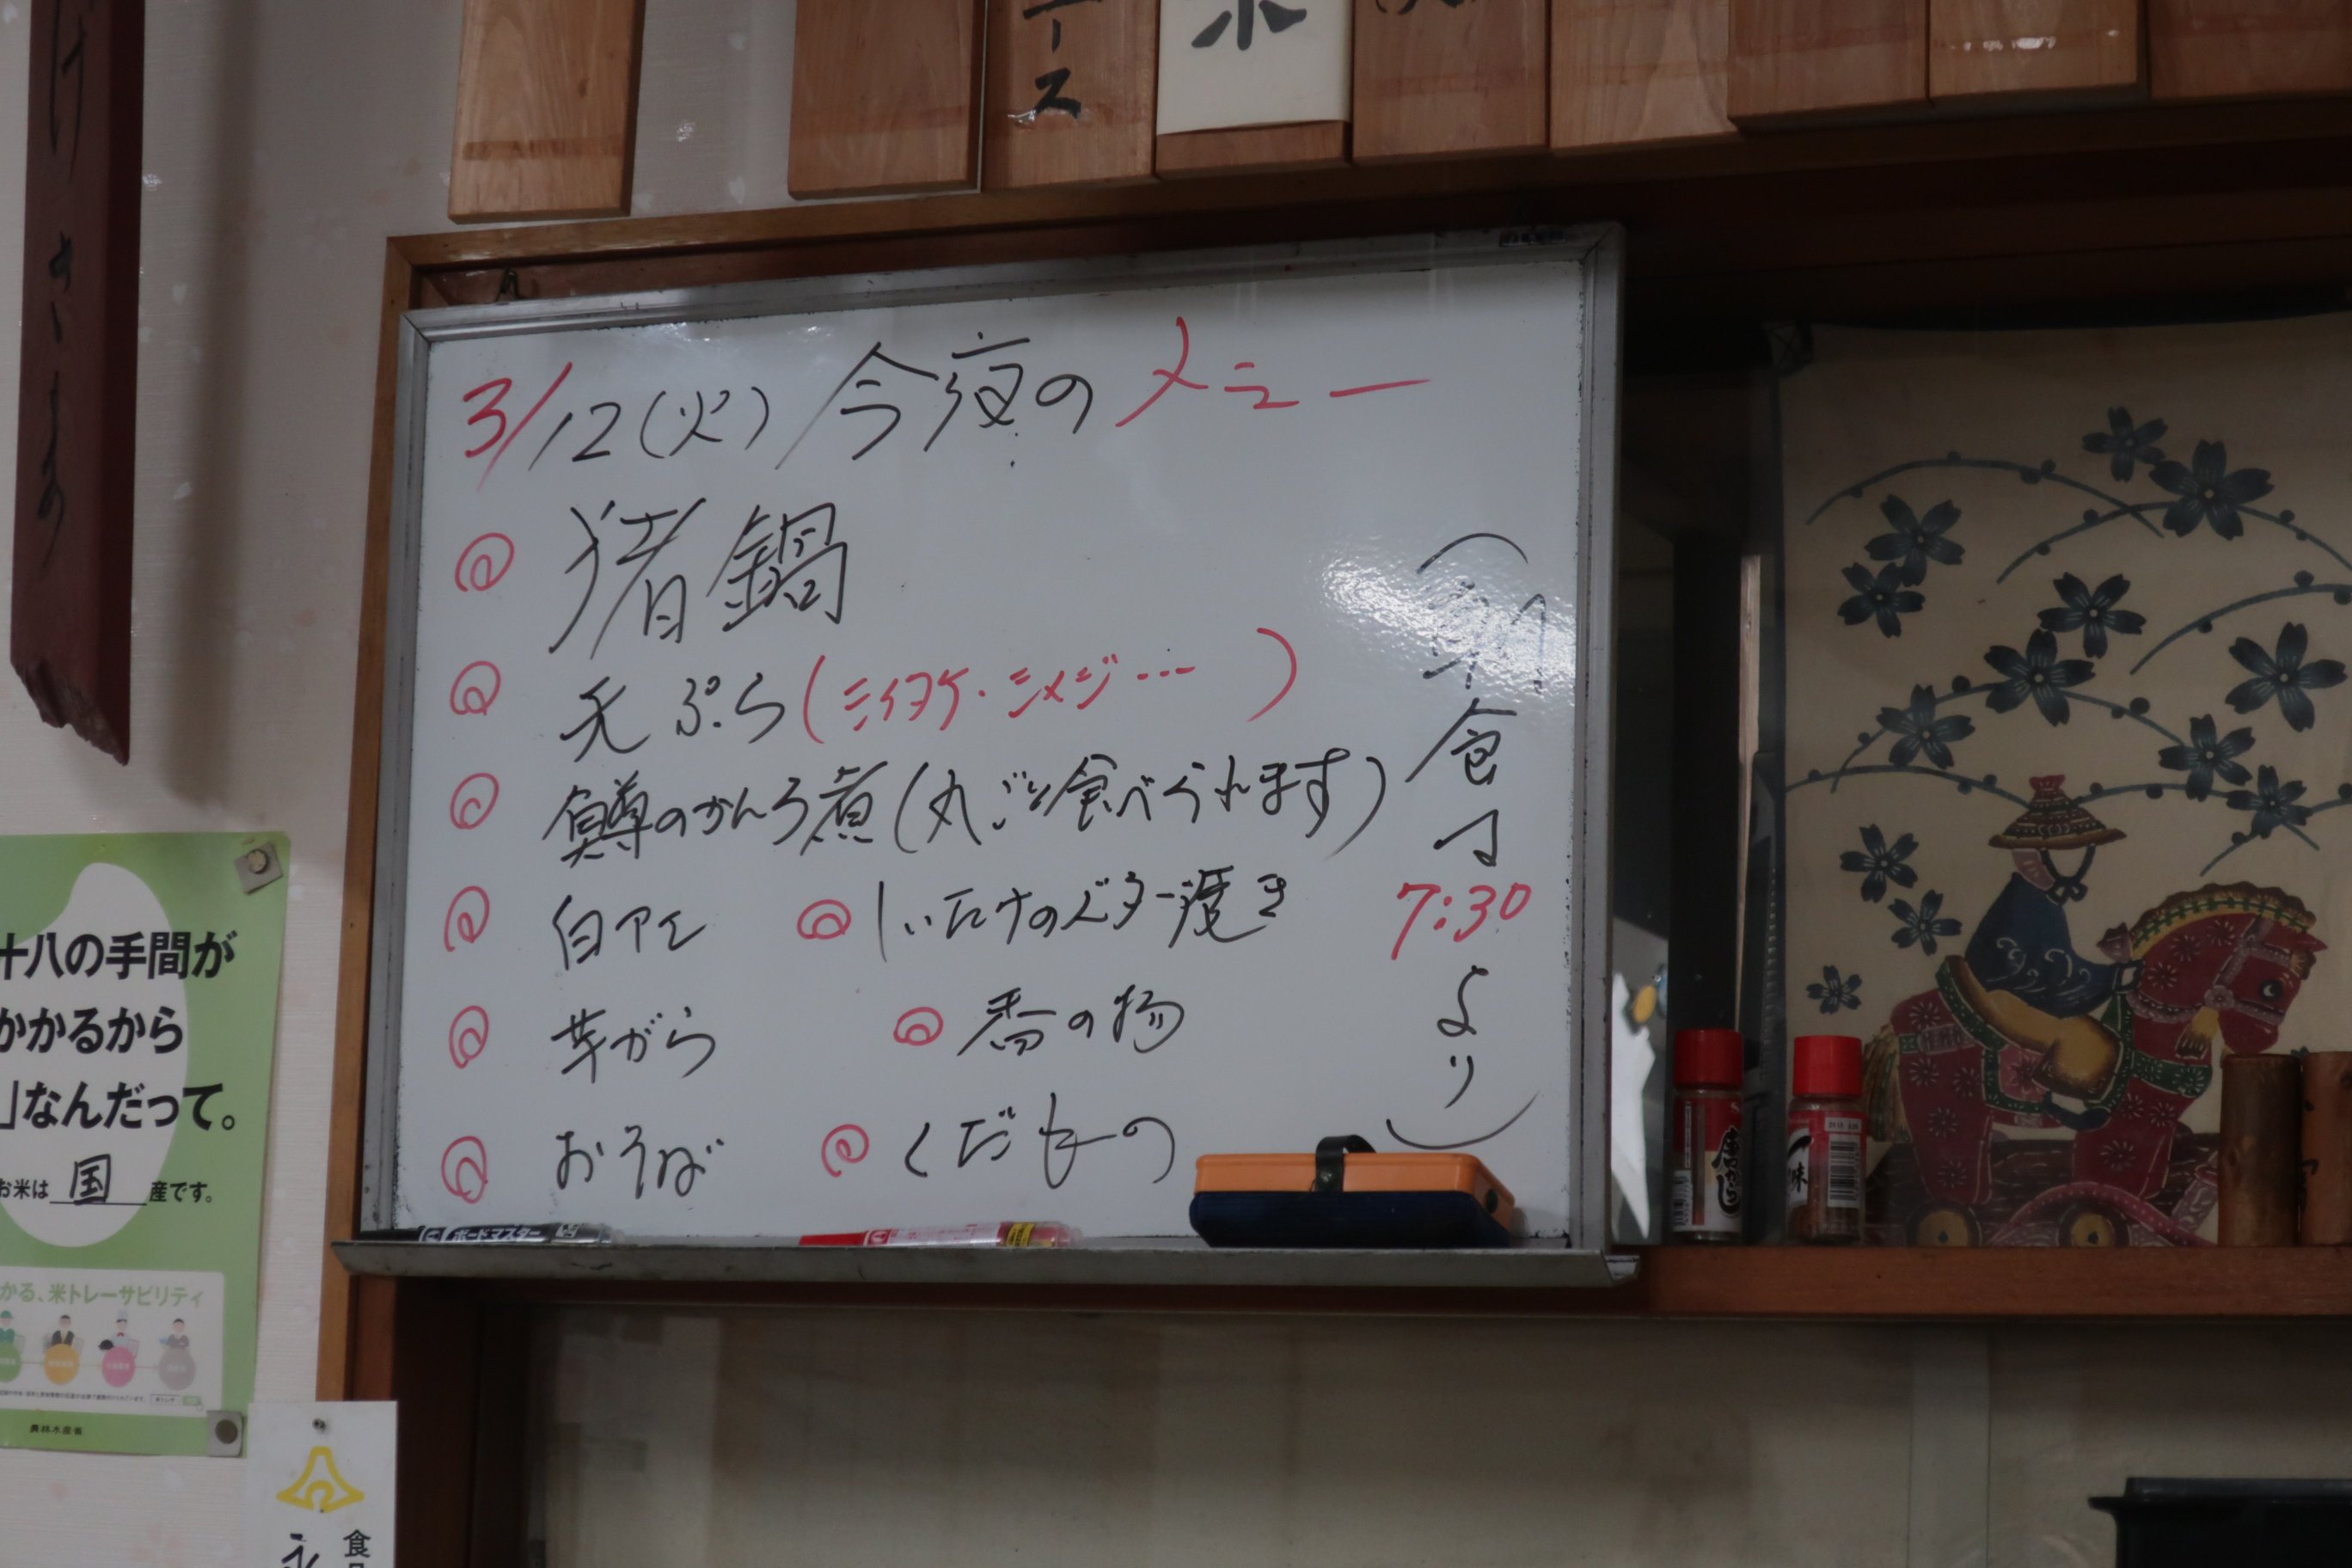 けさまの
ース
3/12(火) 今夜のメニュー
猪鍋
天ぷら(シイタケ・シメジ… )
鱒のかんろ煮(丸ごと食べられます)
白アエ
しいたけのバター焼き
芋がら
香の物
おそば
くだもの
(朝食は7:30より)
十八の手間が
かかるから
」なんだって。
お米は国産です。
かる、米トレーサビリティ
農林水産省
ボードマスター
唐がらし
味
食